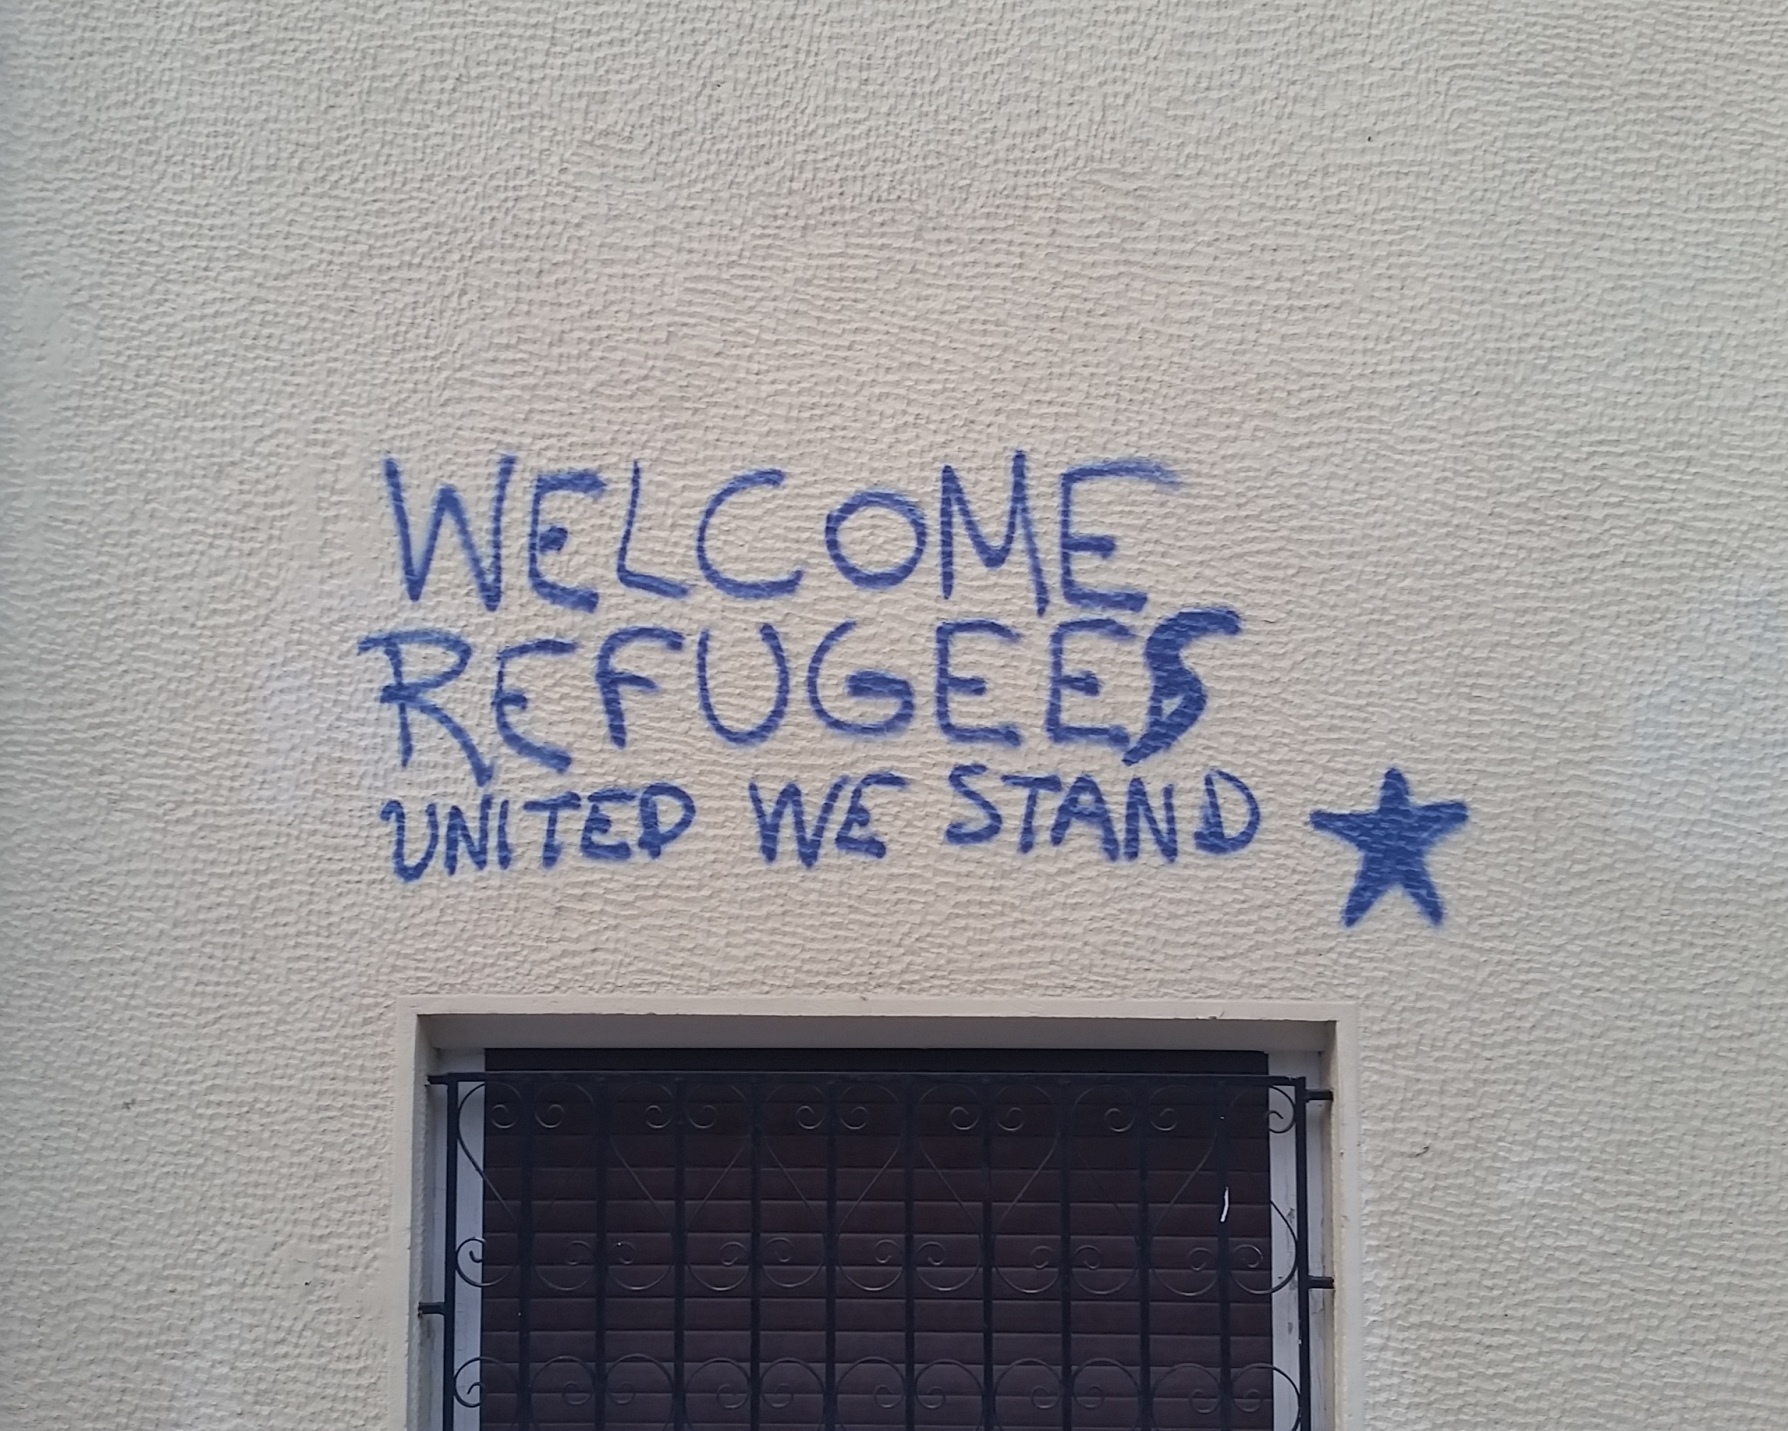 WELCOME
REFUGEES
UNITED WE STAND